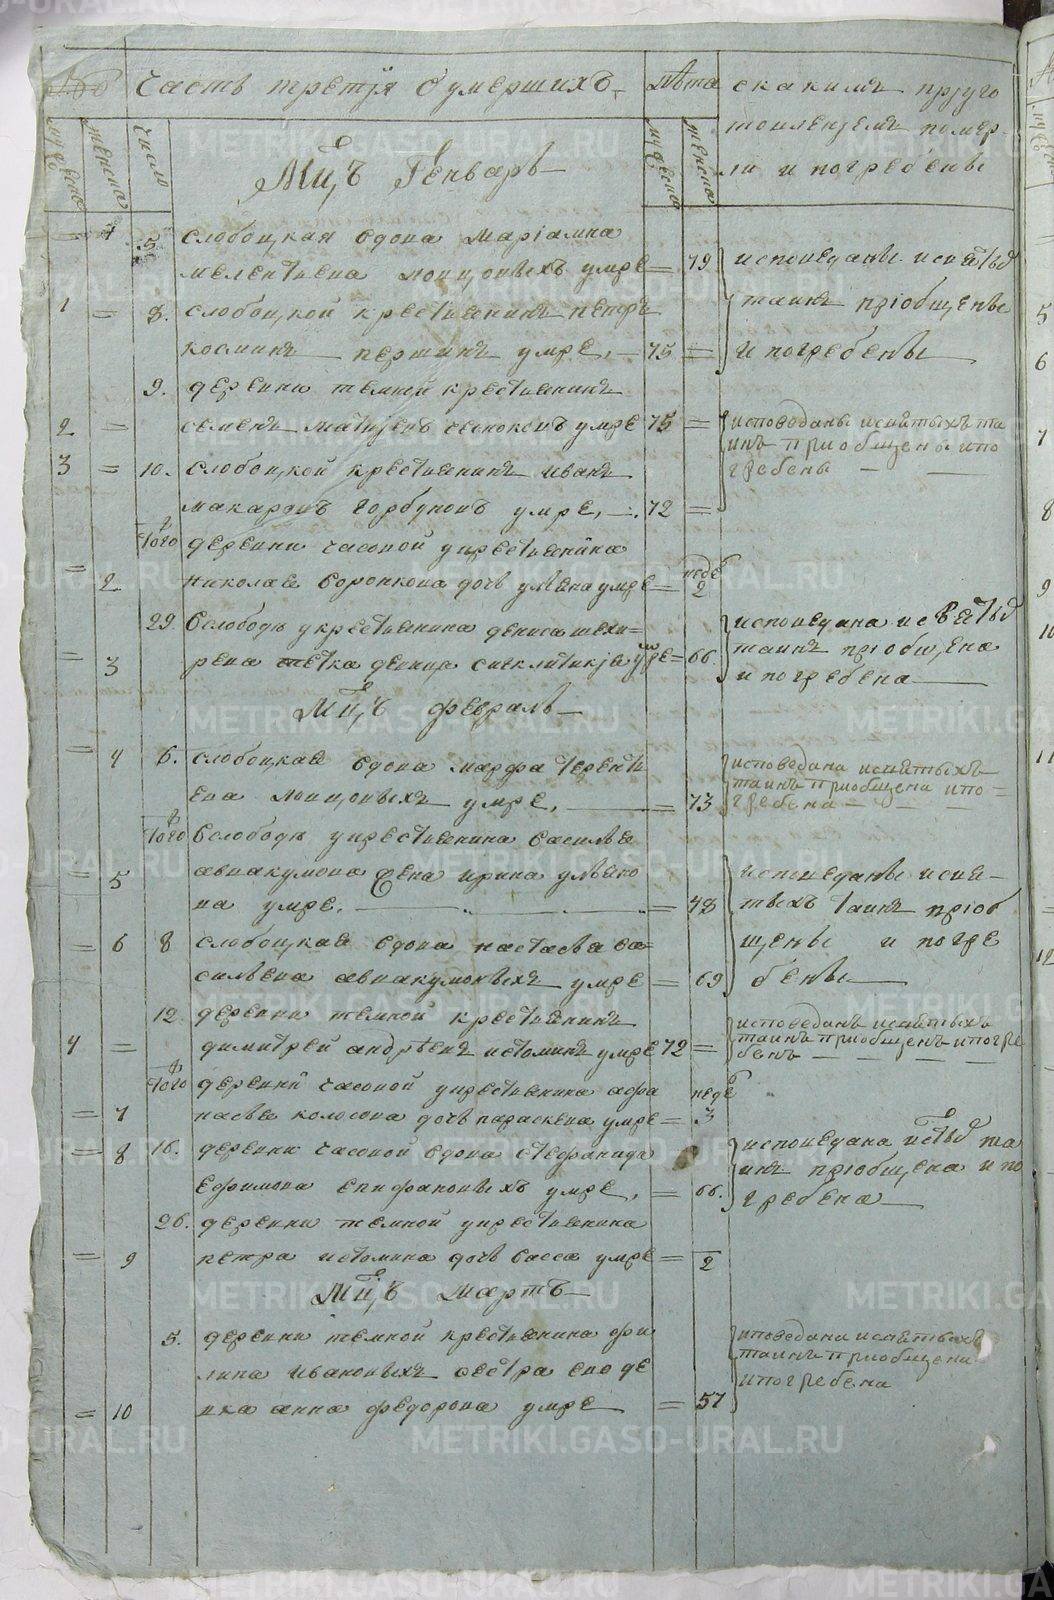 Часть третія Оумершихъ
лѣта
скакимъ пріуго
товленіемъ помер
ли и погребены
мужеска
женска
число
мужеска
женска
Мцъ Генварь
1 5. слободская вдова Маріамна
мелентьева умре = 79
исповеданы исвѣтыхъ
1 = 8. слободской крестьянинъ петръ
косминъ першинъ умре, 75 =
таинъ пріобщены
и погребены
9. деревни темной крестьянинъ
2 = семенъ матѳѣевъ умре 75 =
исповѣданы исвятыхъ та
инъ приобщены ипо
гребены
3 = 10. слободской крестьянинъ иванъ
макаровъ горбуновъ умре, 72 =
Того деревни часовой укрестьянина
= 2 николае воронкова дочь ульяна умре = неде 2
29. Вслободѣ укрестьянина дениса
= 3 тетка девица синклитикіе умре = 66.
исповедана исвятыхъ
таинъ пріобщена
и погребена
Мцъ февраль
= 4 6. слободская вдова марфа терентьева
умре, = 73
исповедана исвятыхъ
таинъ приобщена ипо=
гребена
Того Вслободѣ укрестьянина василье
= 5 аввакумова жена ирина ульяно
ва умре. = 48
исповеданы исвя
тыхъ таинъ пріоб
= 6 8 слободская вдова настасья ва=
сильева аввакумовыхъ умре = 69
щены и погре
бены
12. деревни темной крестьянинъ
4 = димитрей андрѣевъ истоминъ умре 72 =
исповеданъ исвятыхъ
таинъ приобщенъ ипогре
бенъ
Того деревни часовой укрестьянина афа
= 7 насье колосова дочь параскева умре = неде 3
= 8 16. деревни часовой вдова стефанида
ефимова епифановыхъ умре, = 66.
исповедана истыхъ та
инъ пріобщена и по
гребена
26. деревни темной укрестьянина
= 9 петра истомина дочь васса умре = 2
Мцъ Мартъ
5. деревни темной крестьянина фи
липа ивановыхъ сестра ево де
= 10 вка анна федорова умре = 57
иповедана исвятыхъ
таинъ приобщена
ипогребена
METRIKI.GASO-URAL.RU